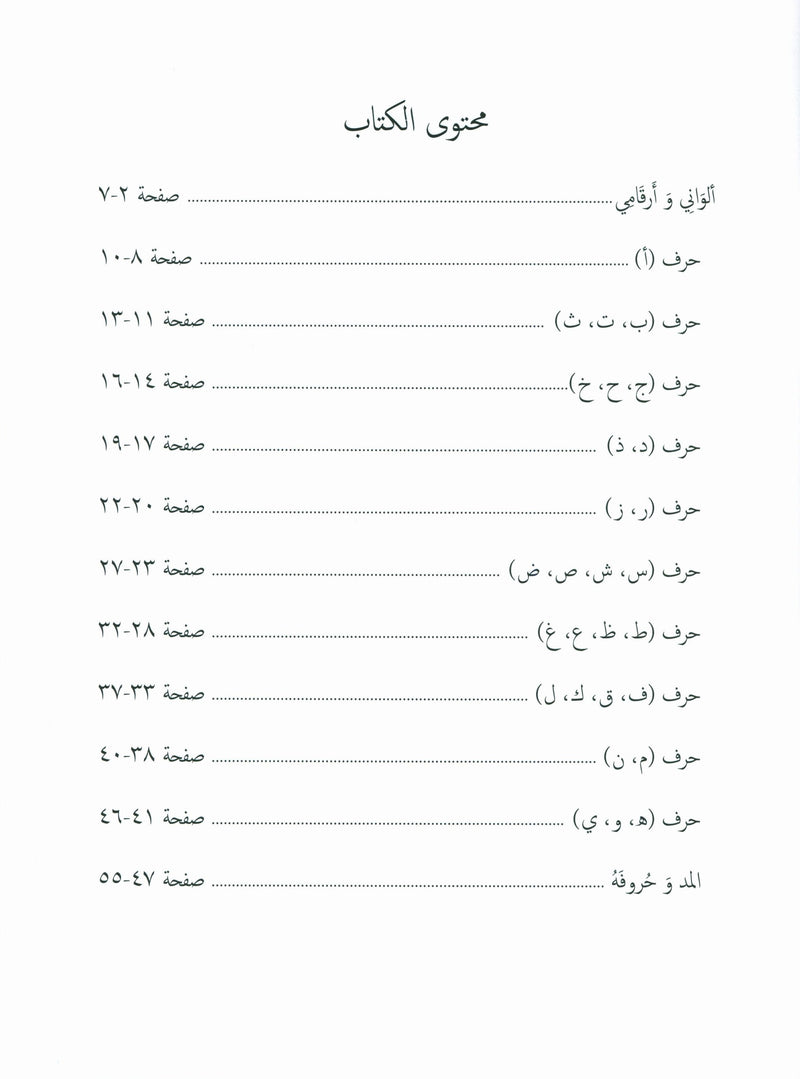 محتوى الكتاب
ألوَانِي وَ أَرقَامِي ........................ صفحة ٢-٧
حرف (أ) ........................ صفحة ٨-١٠
حرف (ب، ت، ث) ........................ صفحة ١١-١٣
حرف (ج، ح، خ) ........................ صفحة ١٤-١٦
حرف (د، ذ) ........................ صفحة ١٧-١٩
حرف (ر، ز) ........................ صفحة ٢٠-٢٢
حرف (س، ش، ص، ض) ........................ صفحة ٢٣-٢٧
حرف (ط، ظ، ع، غ) ........................ صفحة ٢٨-٣٢
حرف (ف، ق، ك، ل) ........................ صفحة ٣٣-٣٧
حرف (م، ن) ........................ صفحة ٣٨-٤٠
حرف (هـ، و، ي) ........................ صفحة ٤١-٤٦
المد وَ حُروفَهُ ........................ صفحة ٤٧-٥٥